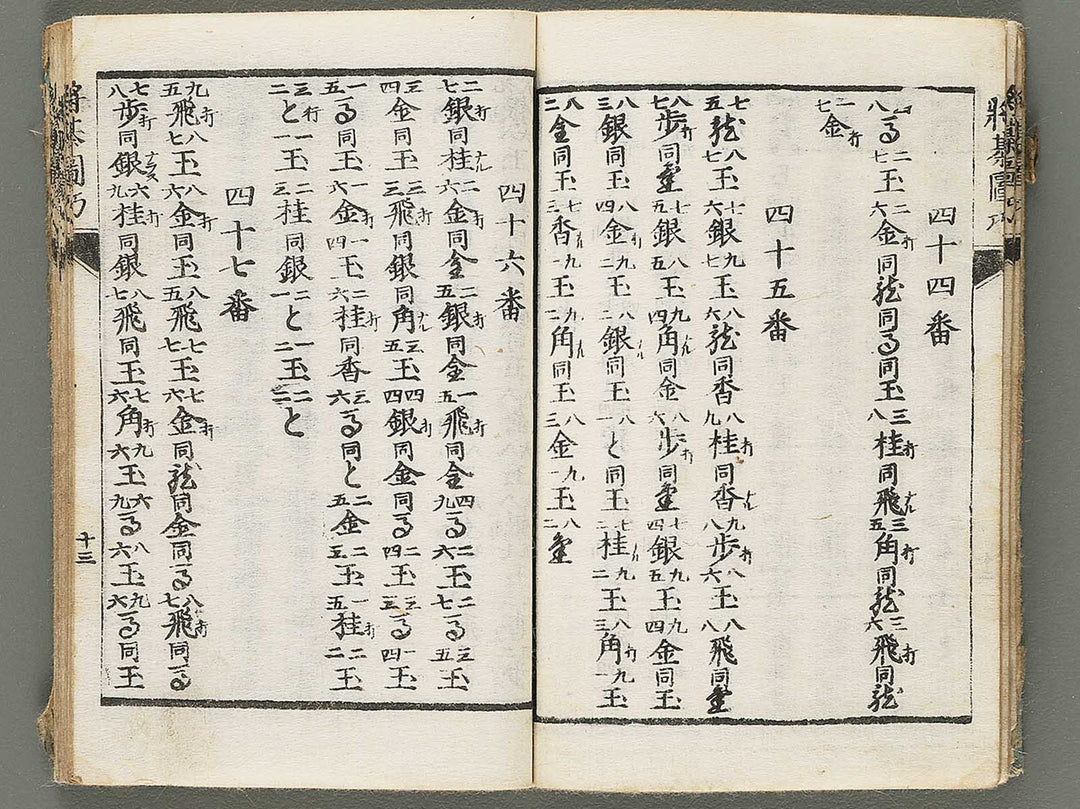 將棊圖巧
四十四番
一八馬二七玉二六金打同龍同馬同玉三八桂打同飛なる三五角打同龍三六飛打同龍
一七金打
四十五番
七五龍八七玉七六銀九七玉八六龍同香八九桂打同香なる九八歩打八六玉八八飛同金
八七歩打同金七五銀八五玉九四角なる同金八六歩打同金七四銀九五玉九四金同玉
八三銀同玉八四金打九二玉八二銀なる同玉八一と同玉七二桂なる九二玉八三角打九一玉
八二金同玉三香なる九一玉九二角なる同玉八三金九一玉八二金
四十六番
二七銀打同桂なる二六金打同金二五銀打同金一五飛打同金四九馬二六玉二七馬三五玉
三四金同玉三三飛打同銀同角なる三五玉四四銀打同金同馬二四玉三三馬一四玉
一五馬同玉一六金打一四玉二六桂打同香三六馬同と二五金二三玉一五桂打二二玉
三二と行一一玉二三桂同銀二一と一二玉二二と
四十七番
九五飛打八七玉八六金打同玉八五飛七七玉七六金打同龍同金同馬八七飛打同馬
七八歩打同銀ナラス六九桂打同銀八七飛同玉七六角打九六玉六九馬八六玉九六馬同玉
將棊圖巧
十三